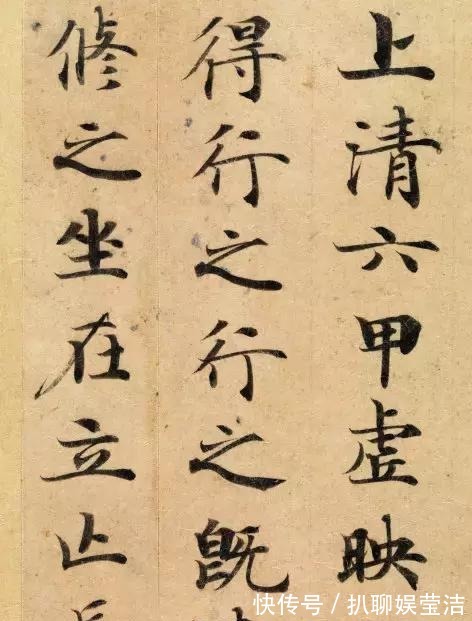 上清六甲虚映
得行之行之既
修之坐在立亡
快传号/扒聊娱莹洁